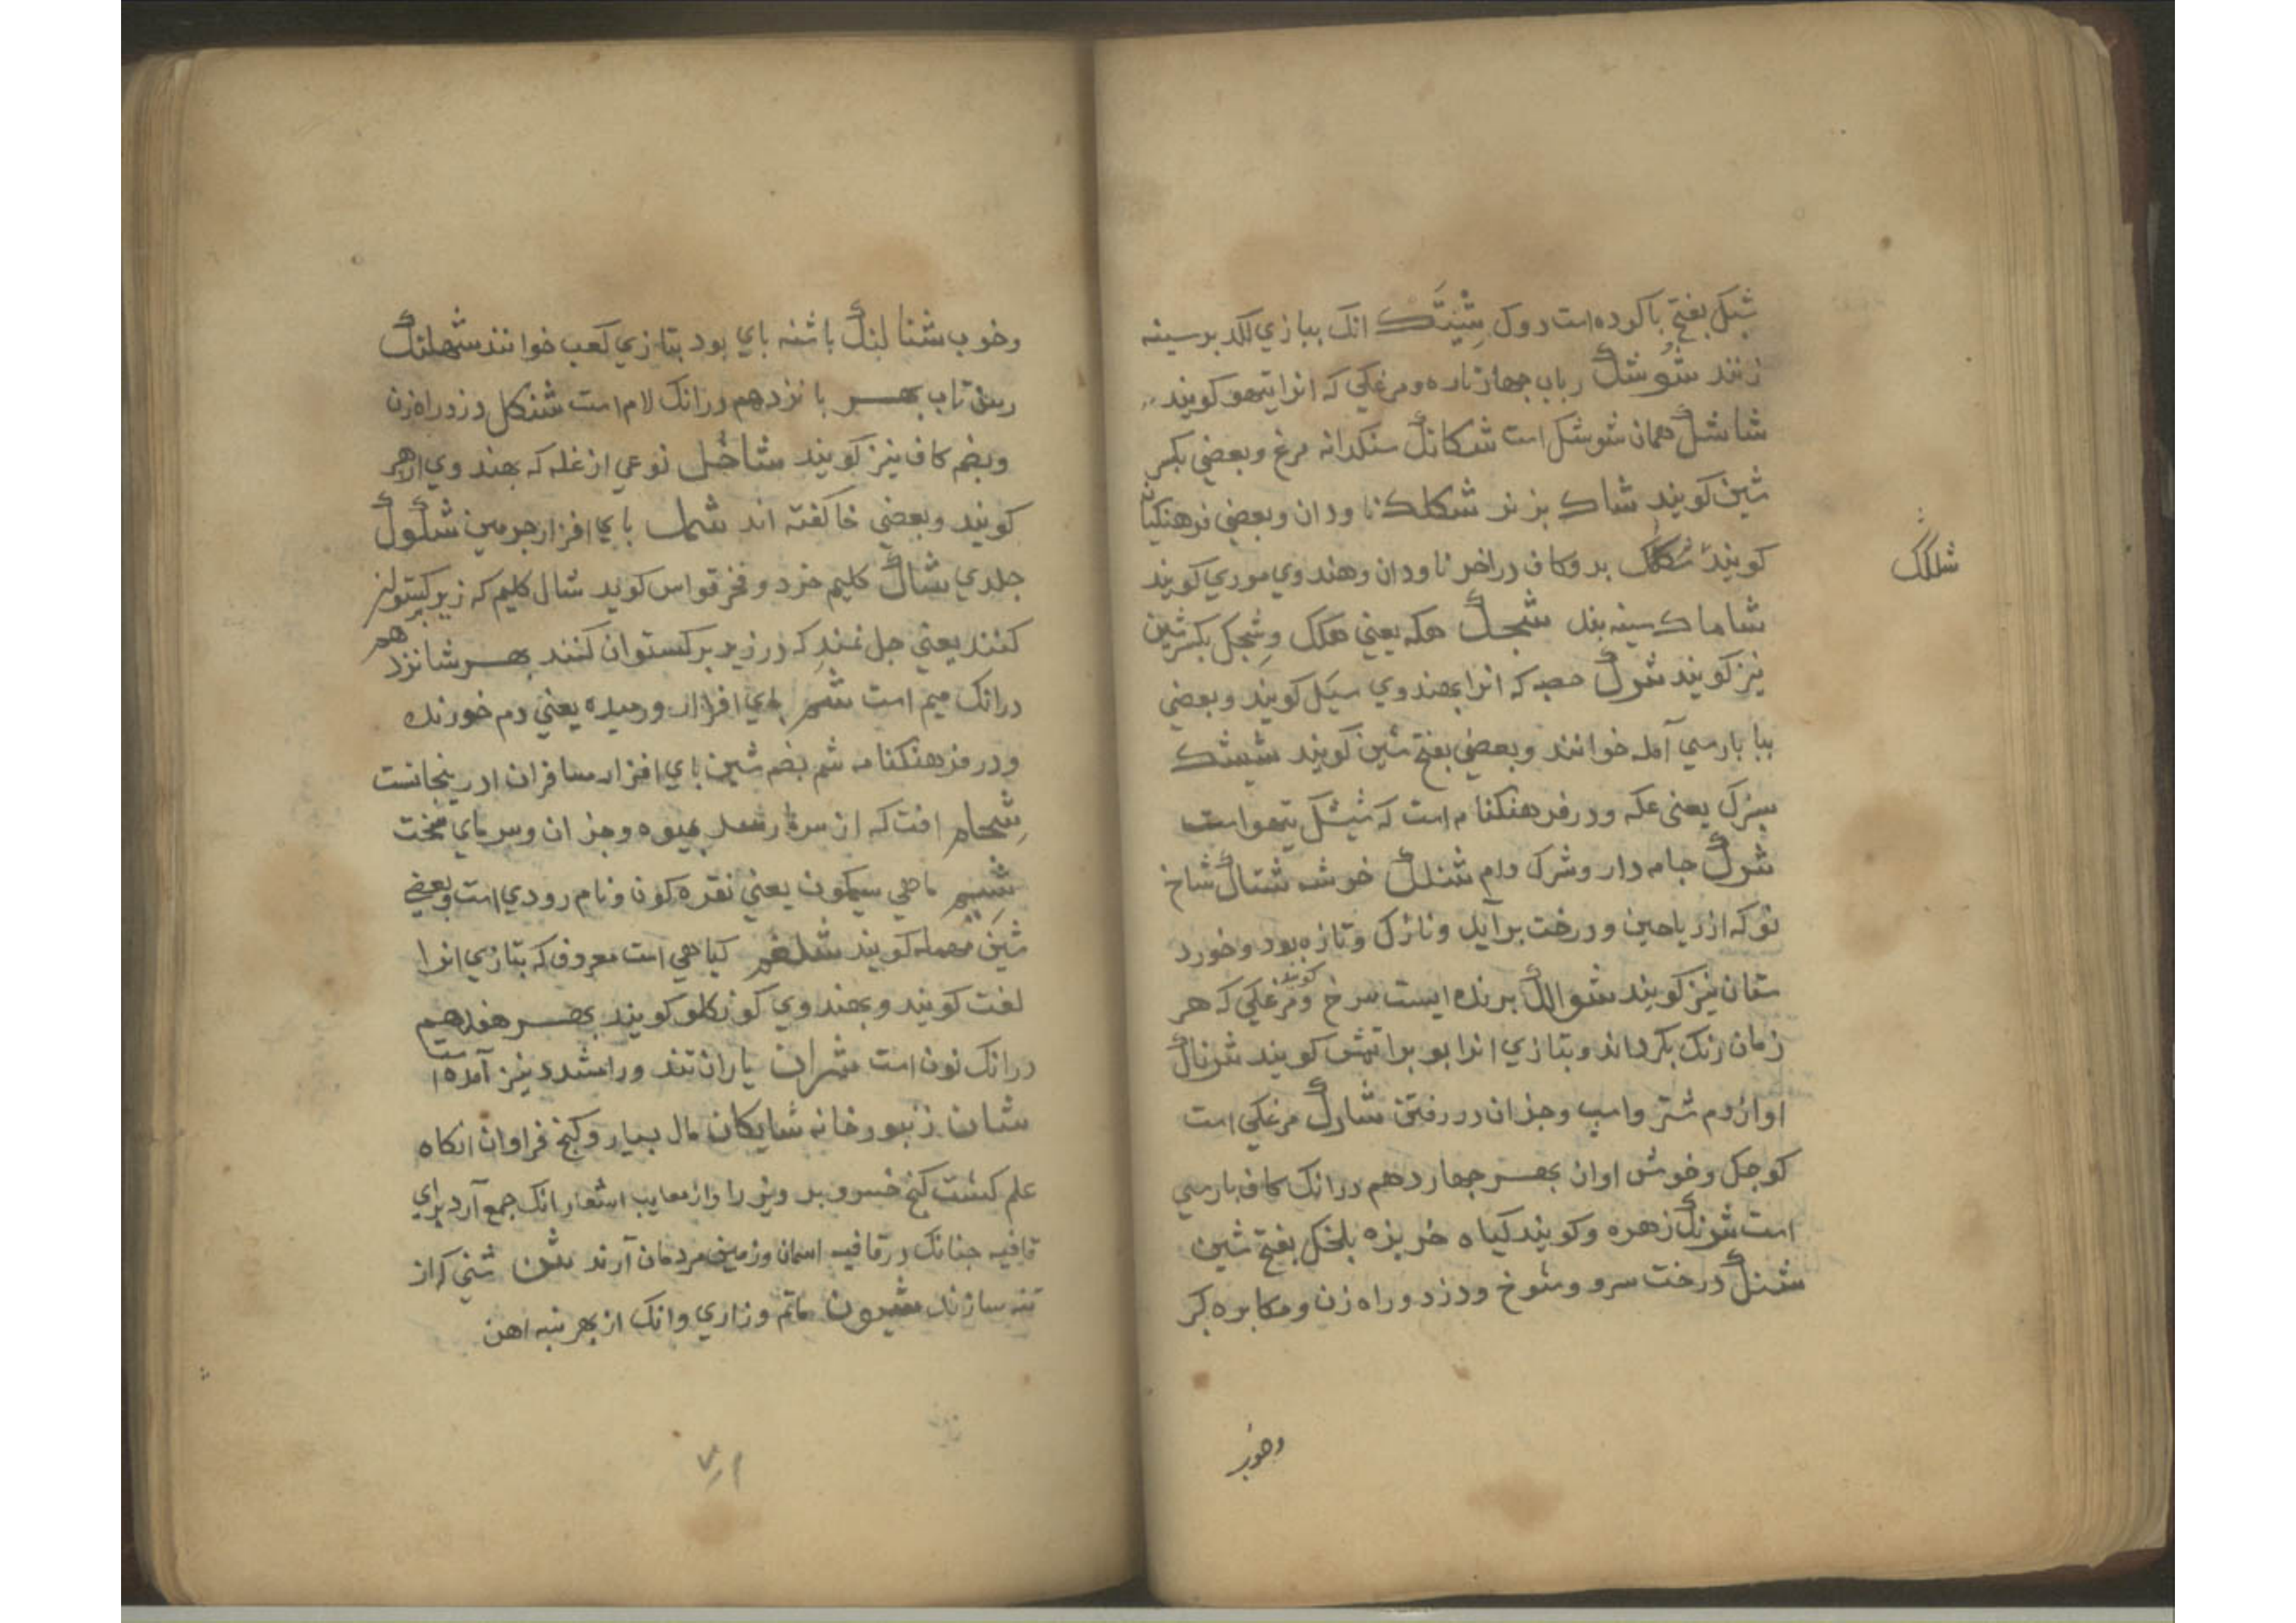 شبکل بفتح با کوده است دوک شپتک انک ببازی لکد بر سینه
زنند شوشک رباب چهار تاره و مرغکی که انرا تیهو کویند
شاشک همان شوشک است شکانک سنکدانه مرغ و بعضی بکسر
شین کویند شاک بز نر شکلک ناودان و بعضی فرهنکیان
کویند شکک بدو کاف در اخر ناودان و هندوی موری کویند
شلکک
شاماک سینه بند شجک هکه یعنی هکک وشجک بکسر شین
نیز کویند شرک حصبه که انرا بهندوی سیتل کویند و بعضی
ببا پارسی آمله خوانند و بعضی بفتح شین کویند شیشک
سیزک یعنی عکه و در فرهنکنامه است که شیشک تیهو است
شرک جامه دار و شرک دام شنلک خوشه شتاک شاخ
نو که از ریاحین و درخت برآید و نازک و تازه بود و خورد
ستان نیز کویند شوالک پرنده ایست سرخ و مرغکی کویند که هر
زمان رنک بکرداند و بتازی انرا بو براقش کویند شرناک
اواز دم شتر و اسپ و جز ان در رفتن شارک مرغکی است
کوچک و خوش اواز بهر چهاردهم درانک کاف پارسی
است شرنک زهره و کویند کیاه خربزه بلخکل بفتح شین
شنک درخت سرو و شوخ و دزد و راه زن و مکابره کر
وخوب
وخوب شنالنک باشنه بای بود بتازی کعب خوانند شهلنک
رسن تاب بهر بانزدهم درانک لام است شنکل دزد راه زن
و بضم کاف نیز کویند شاخل نوعی از غله که بهندوی ارهر
کویند و بعضی خا کفته اند شمل بای افزار جرمین شلول
جلدی شال کلیم خرد و فخر قواس کوید شال کلیم که زیر برکستوان
کنند یعنی جل نمد که در زیر برکستوان کنند بهر شانزدهم
درانک میم است شم بای افزار و رمیده یعنی رم خورنده
و در فرهنکنامه شم بضم شین بای افزار مسافران ادرینجانست
شجام افت که از سرما رسد بمیوه و جز ان و سرمای سخت
شیم ماهی سیمکون یعنی نقره کون و نام رودی است و بعضی
شین مهمله کویند شلغم کیاهی است معروف که بتازی انرا
لفت کویند و بهندوی کونکلو کویند بهر هفدهم
درانک نون است شران باران تند و را مشدد نیز آمده است
شان زنبور خانه شایکان مال بسیار و کنج فراوان انکاه
علم کشت کنج خسرو پرویز را و از معایب اشعار انک جمع آرد برای
قافیه چنانک در قافیه اسمان و زمین مردمان آرند شن شنی که از
تنه سازند شیون ماتم و زاری و انک از بهر تنبه اهن